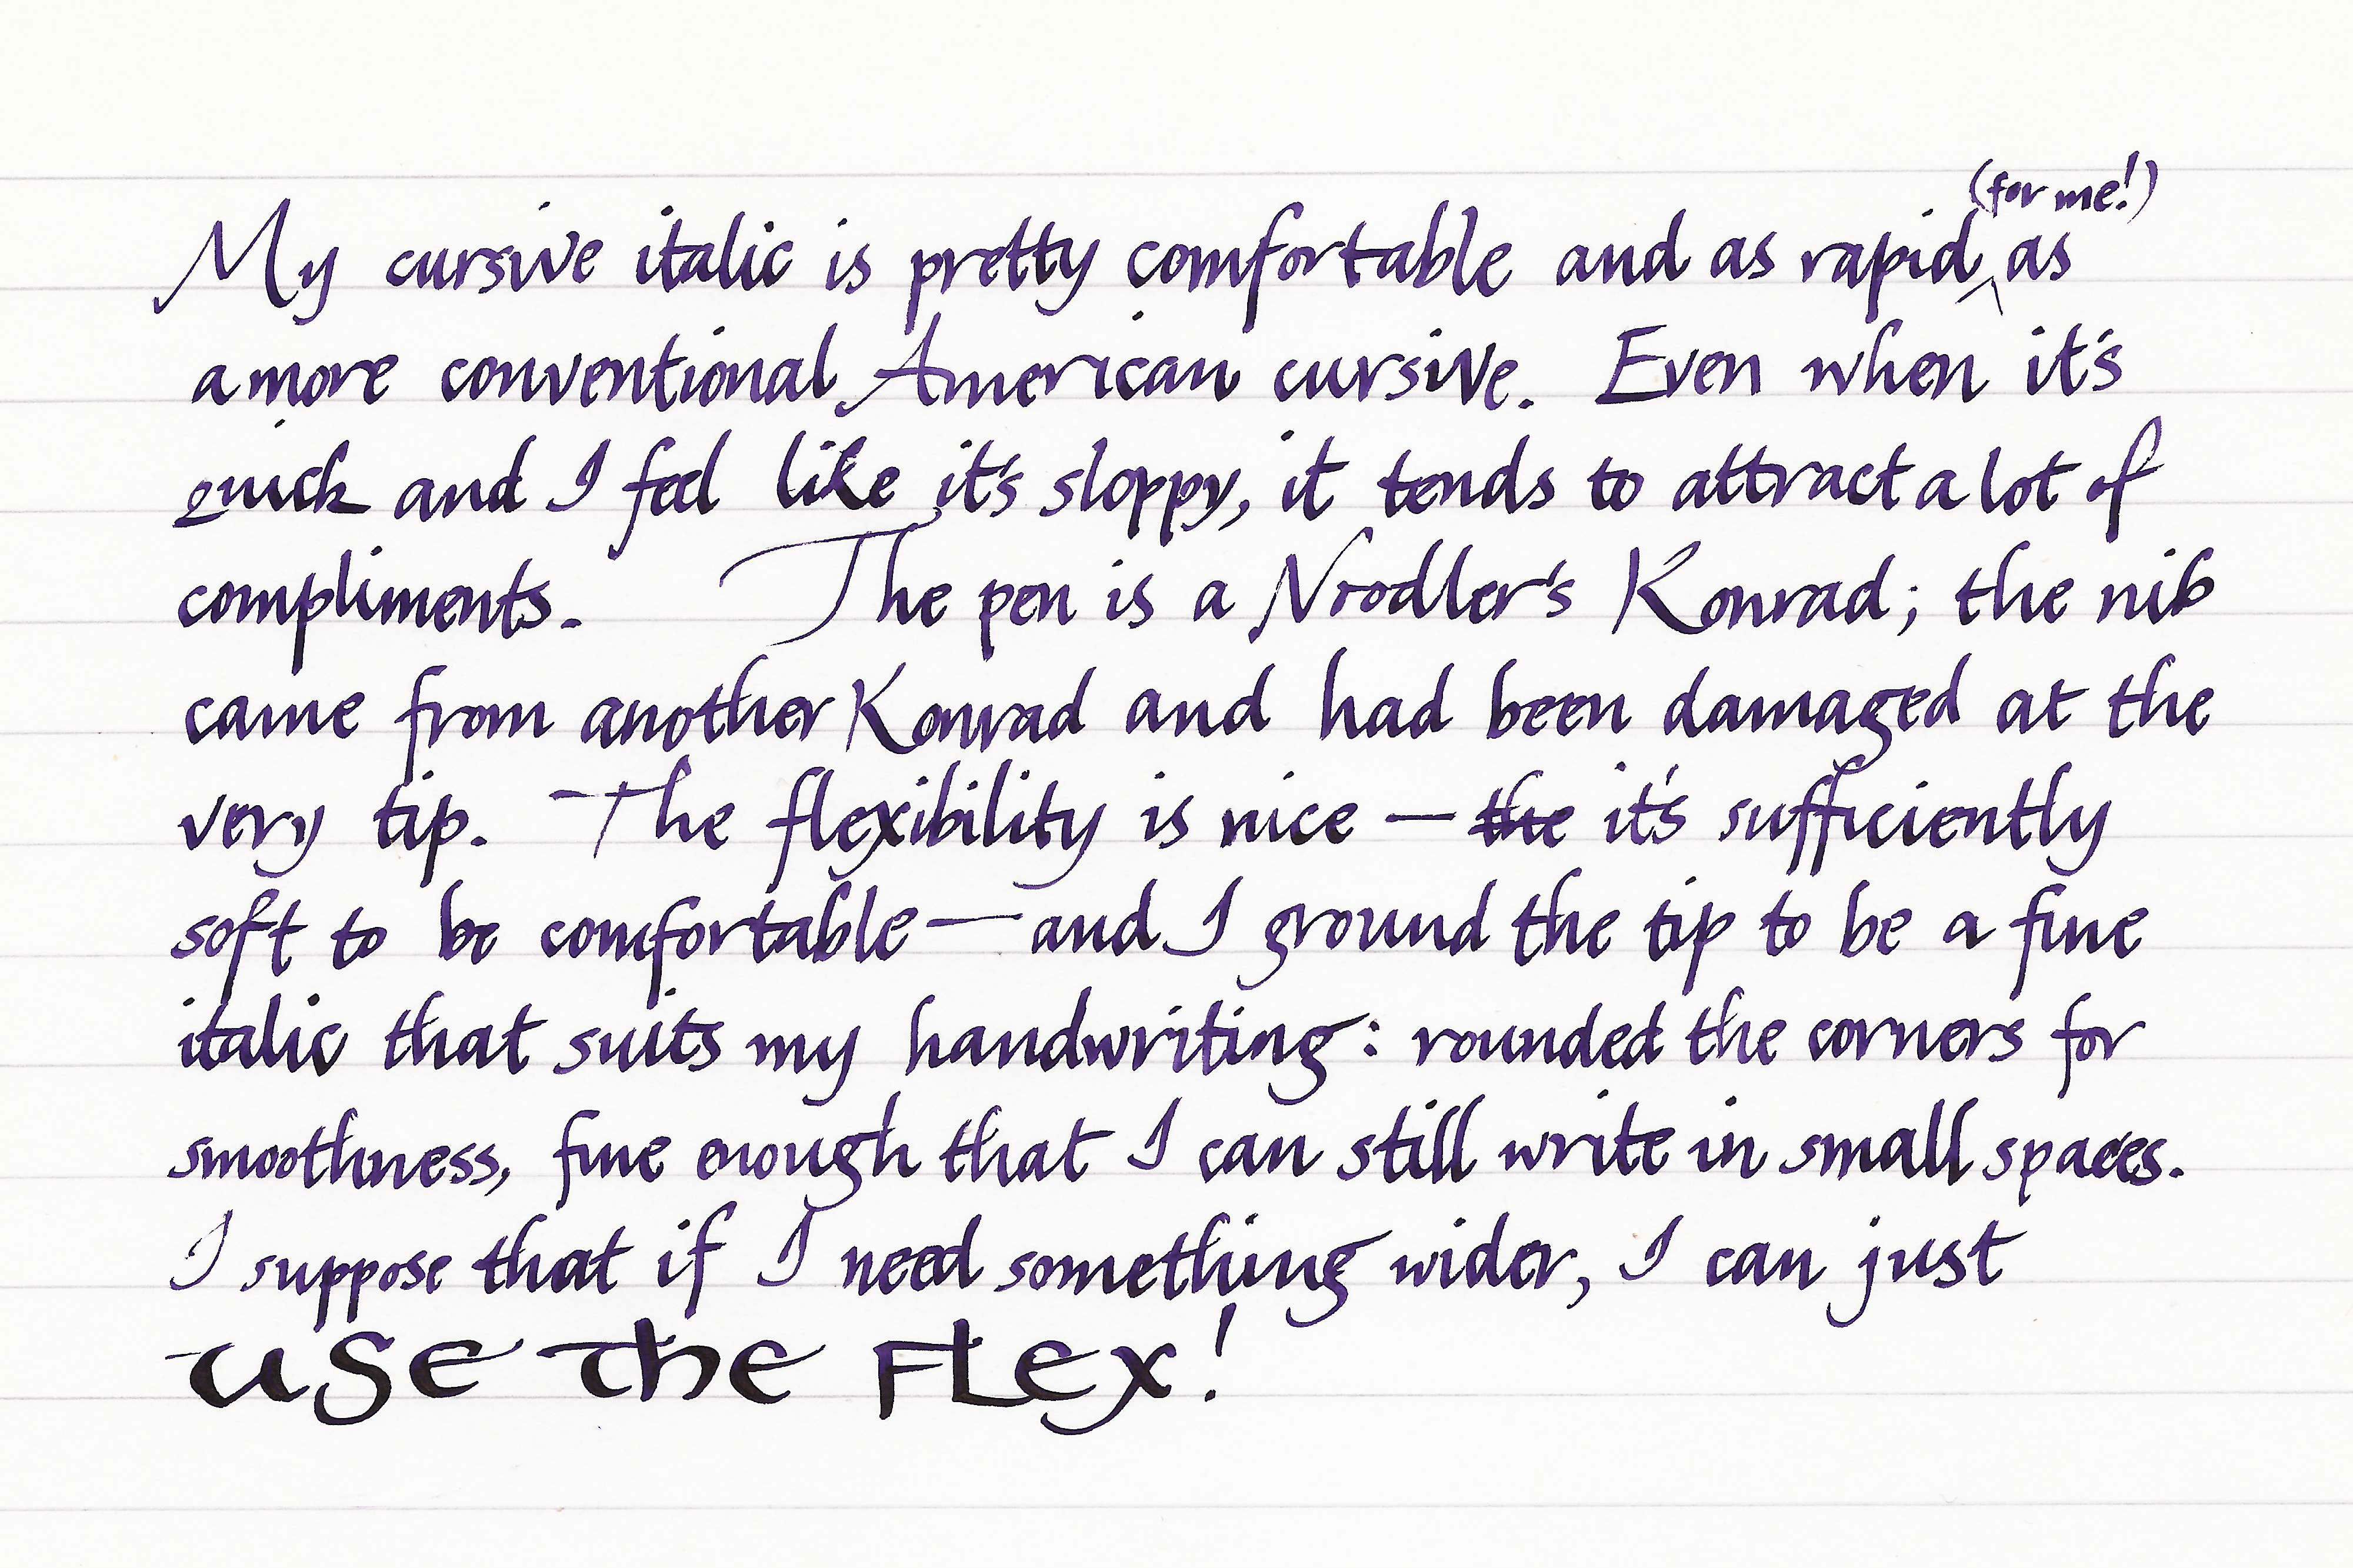 My cursive italic is pretty comfortable and as rapid (for me!) as
a more conventional American cursive. Even when it's
quick and I feel like it's sloppy, it tends to attract a lot of
compliments. The pen is a Noodler's Konrad; the nib
came from another Konrad and had been damaged at the
very tip. The flexibility is nice — the it's sufficiently
soft to be comfortable — and I ground the tip to be a fine
italic that suits my handwriting: rounded the corners for
smoothness, fine enough that I can still write in small spaces.
I suppose that if I need something wider, I can just
USE THE FLEX!